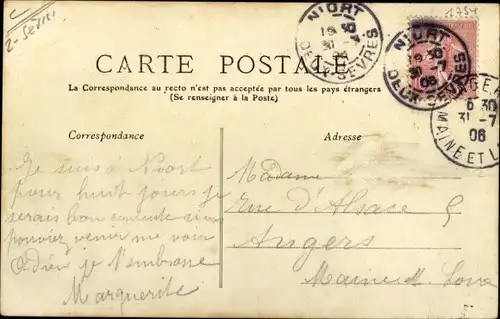 1754
2-Sèvres
NIORT
DEUX-SÈVRES
NIORT
19 30
31 -7
06
DEUX-SÈVRES
6 30
31 -7
06
MAINE ET L
CARTE POSTALE
La Correspondance au recto n'est pas acceptée par tous les pays étrangers
(Se renseigner à la Poste)
Correspondance
Adresse
Je suis à Niort
pour huit jours je
serais bien contente si
pouviez venir me voir
Adieu je
Marguerite
Madame
Rue d'Alsace 5
Angers
Maine et Loire